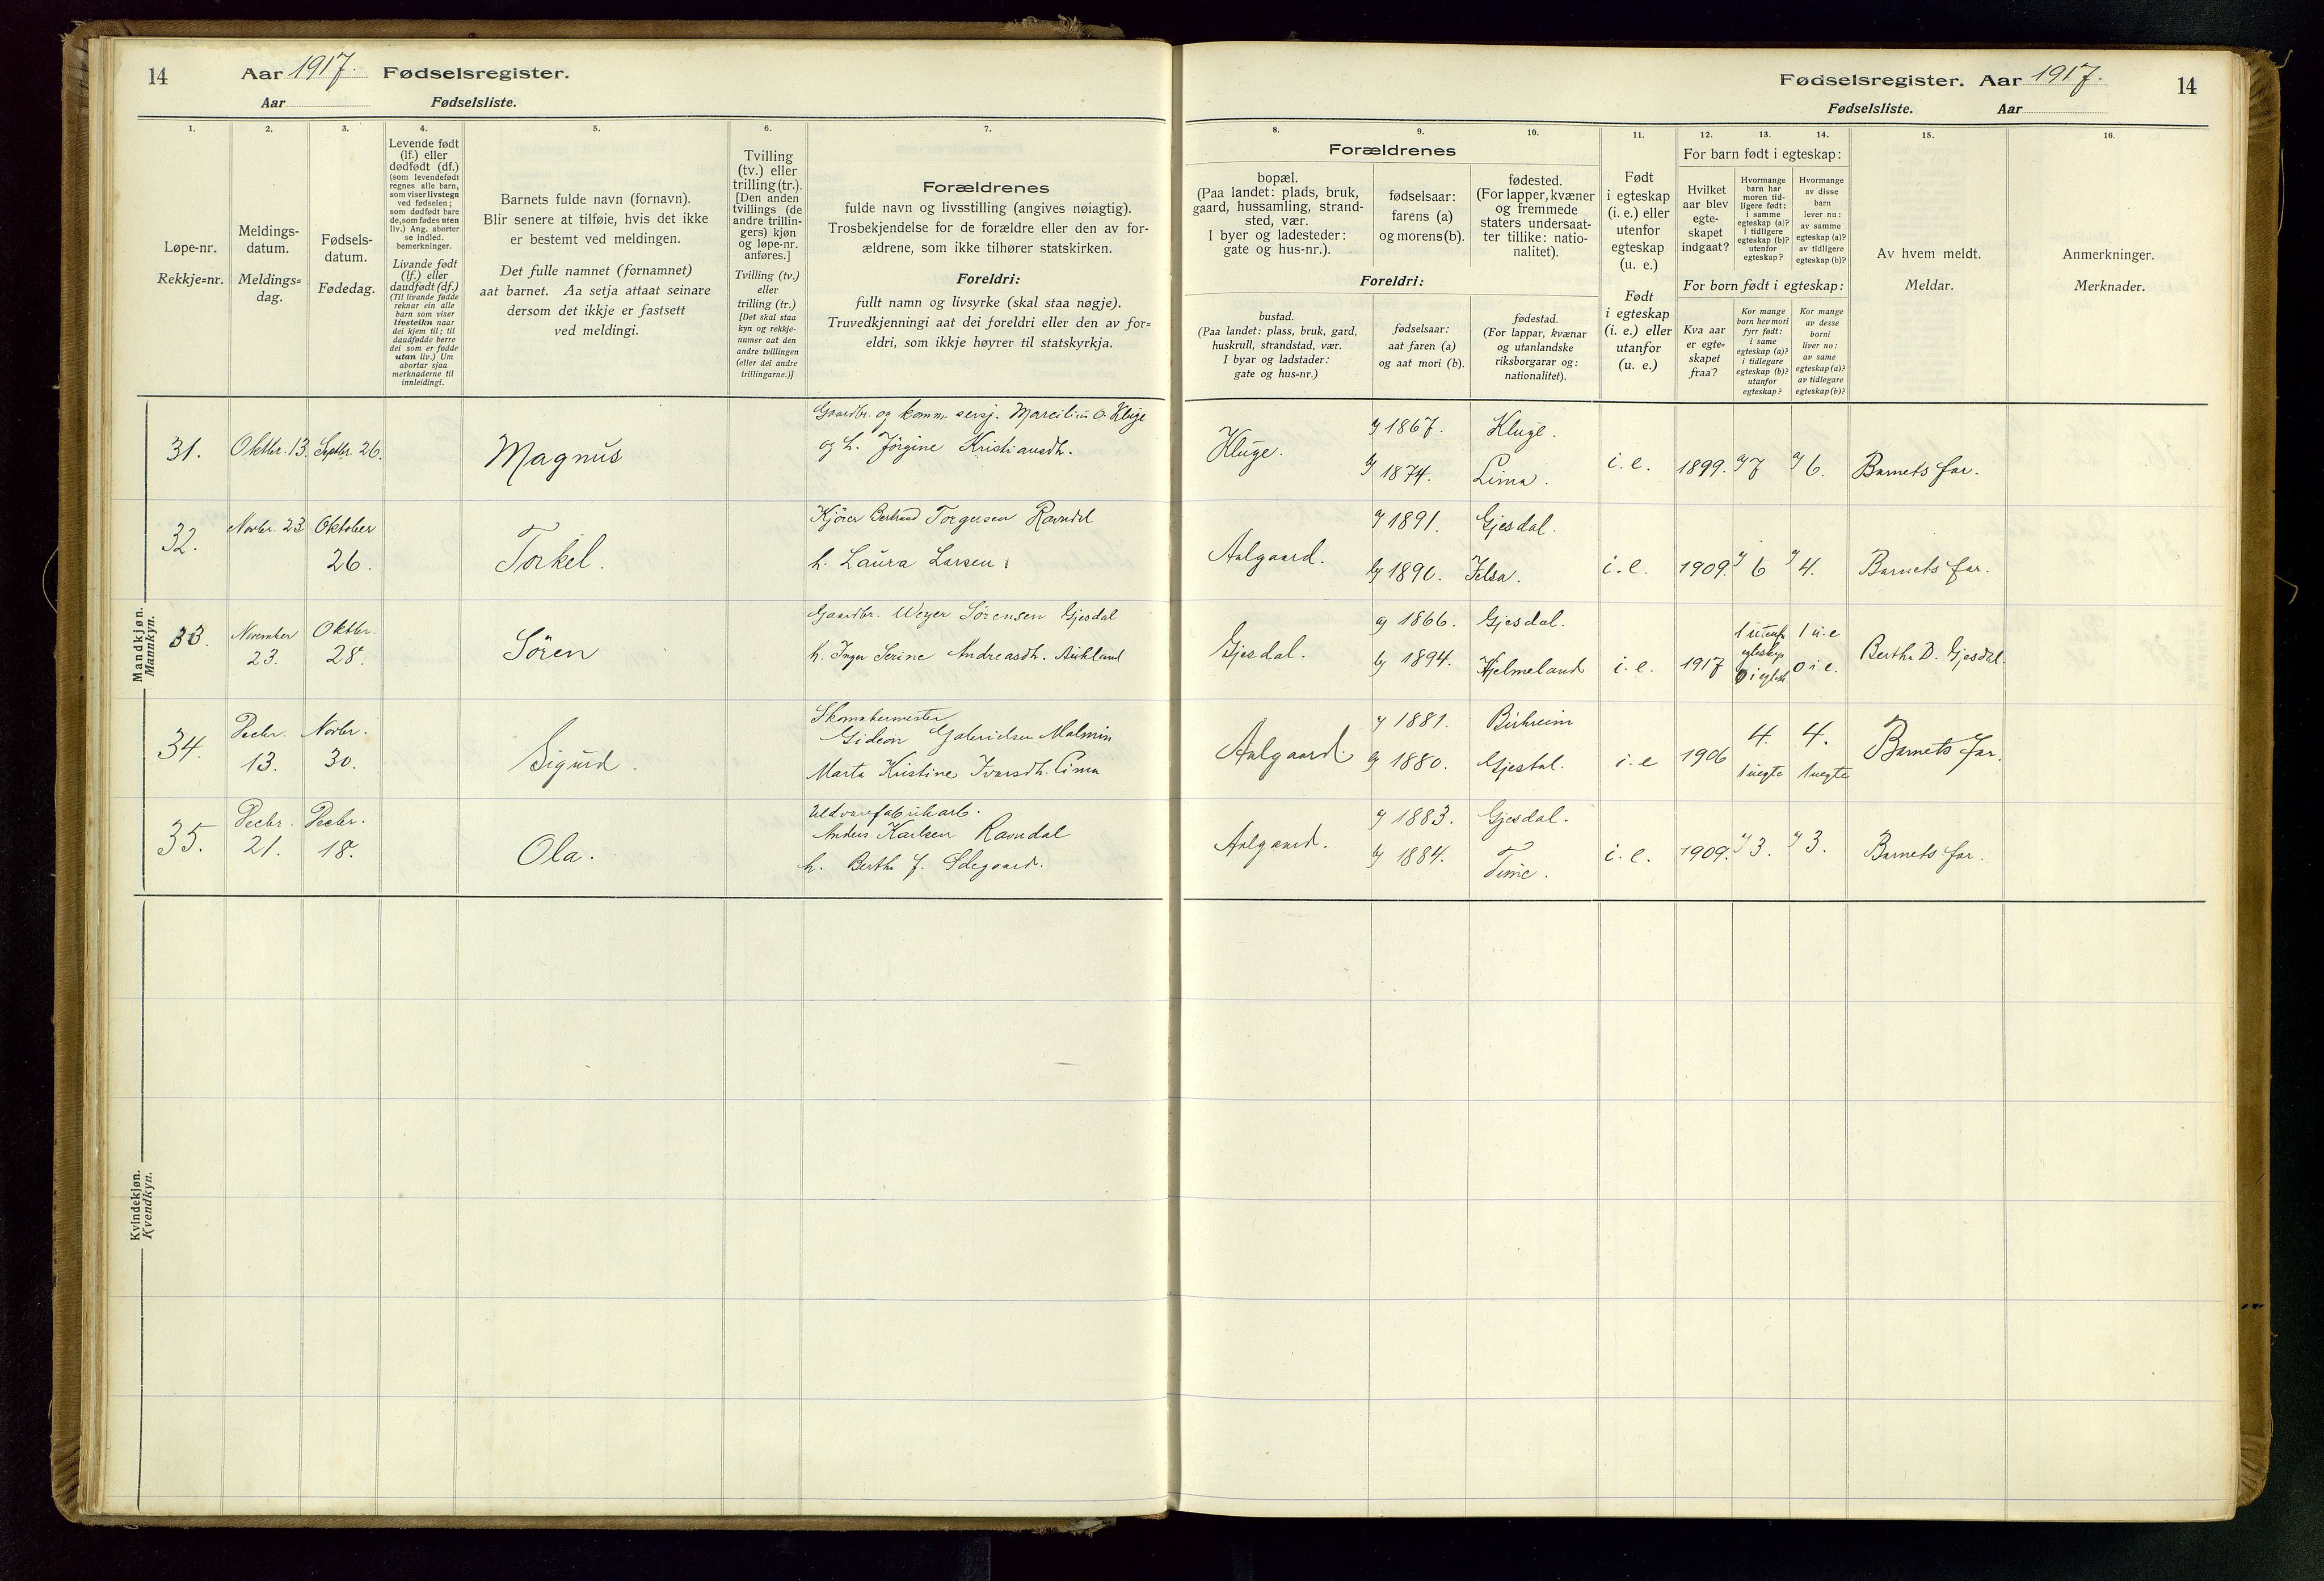 14
Aar 1917. Fødselsregister.
Aar Fødselsliste.
Fødselsregister. Aar 1917.
14
Fødselsliste. Aar
1.
2.
3.
4.
5.
6.
7.
8.
9.
10.
11.
12.
13.
14.
15.
16.
Løpe-nr.
Rekkje=nr.
Meldings-
datum.
Meldings=
dag.
Fødsels-
datum.
Fødedag.
Levende født
(lf.) eller
dødfødt (df.)
(som levendefødt
regnes alle barn,
som viser livstegn
ved fødselen;
som dødfødt bare
de, som fødes uten
liv.) Ang. aborter
se indled.
bemerkninger.
Livande født
(lf.) eller
daudfødt (df.)
(Til livande fødde
reknar ein alle
barn som viser
livsteikn naar
dei kjem til; til
daudfødde berre
dei som er fødde
utan liv.) Um
abortar sjaa
merknaderne til
innleidingi.
Barnets fulde navn (fornavn).
Blir senere at tilføie, hvis det ikke
er bestemt ved meldingen.
Det fulle namnet (fornamnet)
aat barnet. Aa setja attaat seinare
dersom det ikkje er fastsett
ved meldingi.
Tvilling
(tv.) eller
trilling (tr.).
[Den anden
tvillings (de
andre trillin-
gers) kjøn
og løpe-nr.
anføres.]
Tvilling (tv.)
eller
trilling (tr.)
[Det skal staa
kyn og rekkje-
numer aat den
andre tvillingen
(eller dei andre
trillingarne.)]
Forældrenes
fulde navn og livsstilling (angives nøiagtig).
Trosbekjendelse for de forældre eller den av for-
ældrene, som ikke tilhører statskirken.
Foreldri:
fullt namn og livsyrke (skal staa nøgje).
Truvedkjenningi aat dei foreldri eller den av for=
eldri, som ikkje høyrer til statskyrkja.
Forældrenes
bopæl.
(Paa landet: plads, bruk,
gaard, hussamling, strand-
sted, vær.
I byer og ladesteder:
gate og hus-nr.).
fødselsaar:
farens (a)
og morens (b).
fødested.
(For lapper, kvæner
og fremmede
staters undersaat-
ter tillike: natio-
nalitet).
Foreldri:
bustad.
(Paa landet: plass, bruk, gard,
huskrull, strandstad, vær.
I byar og ladstader:
gate og hus=nr.)
fødselsaar:
aat faren (a)
og aat mori (b).
fødestad.
(For lappar, kvænar
og utanlandske
riksborgarar og:
nationalitet).
Født
i egteskap
(i. e.) eller
utenfor
egteskap
(u. e.)
Født
i egteskap
(i. e.) eller
utanfor
(u. e.)
For barn født i egteskap:
Hvilket
aar blev
egte-
skapet
indgaat?
Hvormange
barn har
moren tid-
ligere født:
i samme
egteskap (a)?
i tidligere
egteskap (b)?
utenfor
egteskap?
Hvormange
av disse
barn
lever nu:
av samme
egteskap (a)?
av tidligere
egteskap (b)?
For born født i egteskap:
Kva aar
er egte=
skapet
fraa?
Kor mange
born hev mori
fyrr født:
i same
egteskap (a)?
i tidlegare
egteskap (b)?
utanfor
egteskap?
Kor mange
av desse
borni
liver no:
av same
egteskap (a)?
av tidlegare
egteskap (b)?
Av hvem meldt.
Meldar.
Anmerkninger.
Merknader.
Mandkjøn.
Mannkyn.
31. Oktbr. 13. Septbr. 26. Magnus
Gaardbr. og komm. Kluge
og h. Jørgine Kristiansdh.
Kluge.
a) 1867. Kluge.
b) 1874. Lima.
i. e. 1899. a) 7 a) 6. Barnets far.
32. Novbr. 23 Oktober
26. Torkel.
Kjører Bertrand Torgersen Ravndal
h. Laura Larsen
Aalgaard.
a) 1891. Gjesdal.
b) 1890. Jelsa.
i. e. 1909. a) 6 a) 4. Barnets far.
33. November
23. Oktbr.
28. Sören
Gaardbr. Weyer Sörensen Gjesdal
h. Inger Serine Andreasdh. Aukland
Gjesdal.
a) 1866. Gjesdal.
b) 1894. Hjelmeland
i. e. 1917
1 utenf.
egteskap
0 i egtesk.
1 u. e
0 i e.
Berthe D. Gjesdal.
34. Decbr.
13. Novbr.
30. Sigurd.
Skomakermester
Gideon Gabrielsen Malmin
Marta Kristine Ivarsdh. Lima
Aalgaard.
a) 1881. Birkreim
b) 1880. Gjestal.
i. e 1906
4.
1 uegte
4.
1 uegte
Barnets far.
35. Decbr.
21. Decbr.
18. Ola.
Uldvarefabrikarb.
Anders Karlsen Ravndal
h. Berthe J. Ødegaard.
Aalgaard.
a) 1883. Gjesdal.
b) 1884. Time.
i. e. 1909. a) 3. a) 3. Barnets far.
Kvindekjøn.
Kvendkyn.